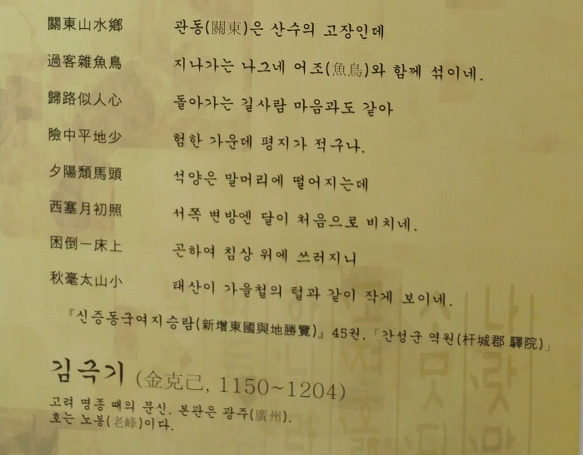 關東山水鄕 관동(關東)은 산수의 고장인데
過客雜魚鳥 지나가는 나그네 어조(魚鳥)와 함께 섞이네.
歸路似人心 돌아가는 길사람 마음과도 같아
險中平地少 험한 가운데 평지가 적구나.
夕陽頹馬頭 석양은 말머리에 떨어지는데
西塞月初照 서쪽 변방엔 달이 처음으로 비치네.
困倒一床上 곤하여 침상 위에 쓰러지니
秋毫太山小 태산이 가을철의 털과 같이 작게 보이네.
『신증동국여지승람(新增東國與地勝覽)』 45권, 「간성군 역원(杆城郡 驛院)」
김극기 (金克己, 1150~1204)
고려 명종 때의 문신. 본관은 광주(廣州).
호는 노봉(老峰)이다.